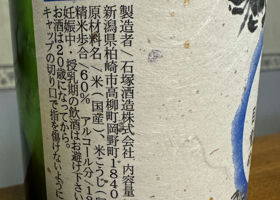 製造者/石塚酒造株式会社 内容量
新潟県柏崎市高柳町岡野町1840
原材料名/米(国産)、米こうじ(国
精米歩合/60% アルコール分/18
妊娠中・授乳期の飲酒はお避け下さい
お酒は20歳になってから。
キャップの切り口で指を傷けないように